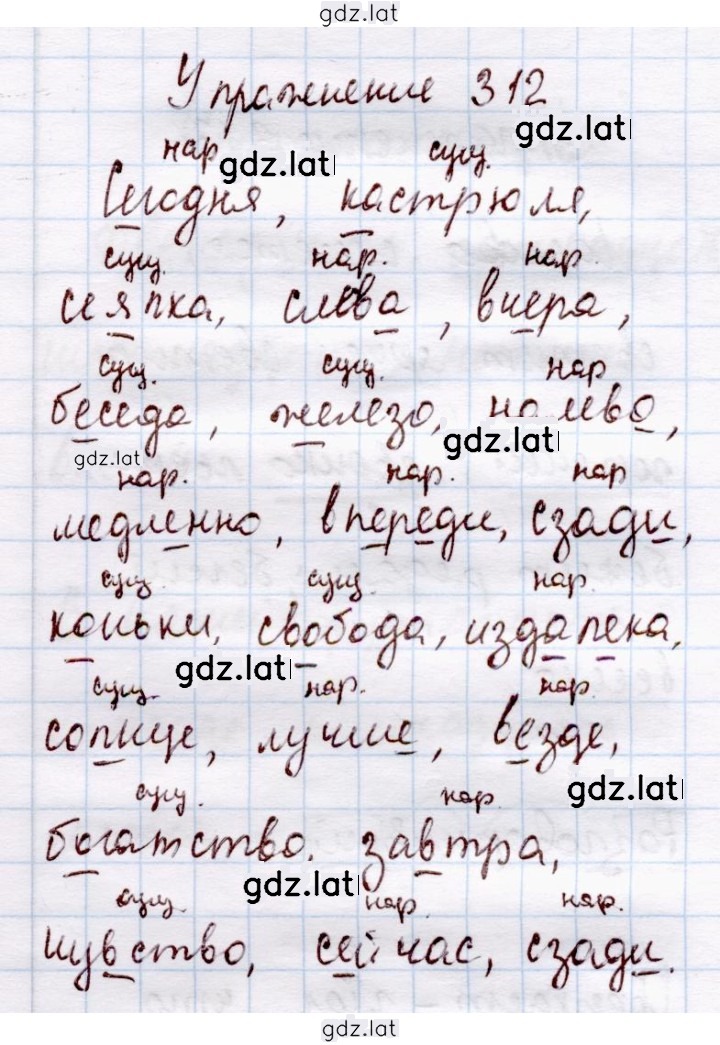 gdz.lat
Упражнение 312
gdz.lat
нар gdz.lat сущ.
Сегодня, кастрюля,
сущ. нар. нар.
сеялка, слева, вчера,
сущ. сущ. нар
беседа, железо, налево,
gdz.lat gdz.lat
нар. нар. нар
медленно, впереди, сзади,
сущ. сущ. нар.
коньки, свобода, издалека,
gdz.lat
сущ. нар. нар.
солнце, лучше, везде,
gdz.lat
сущ. нар.
богатство. завтра,
gdz.lat
сущ. нар. нар.
чувство, сейчас, сзади.
gdz.lat